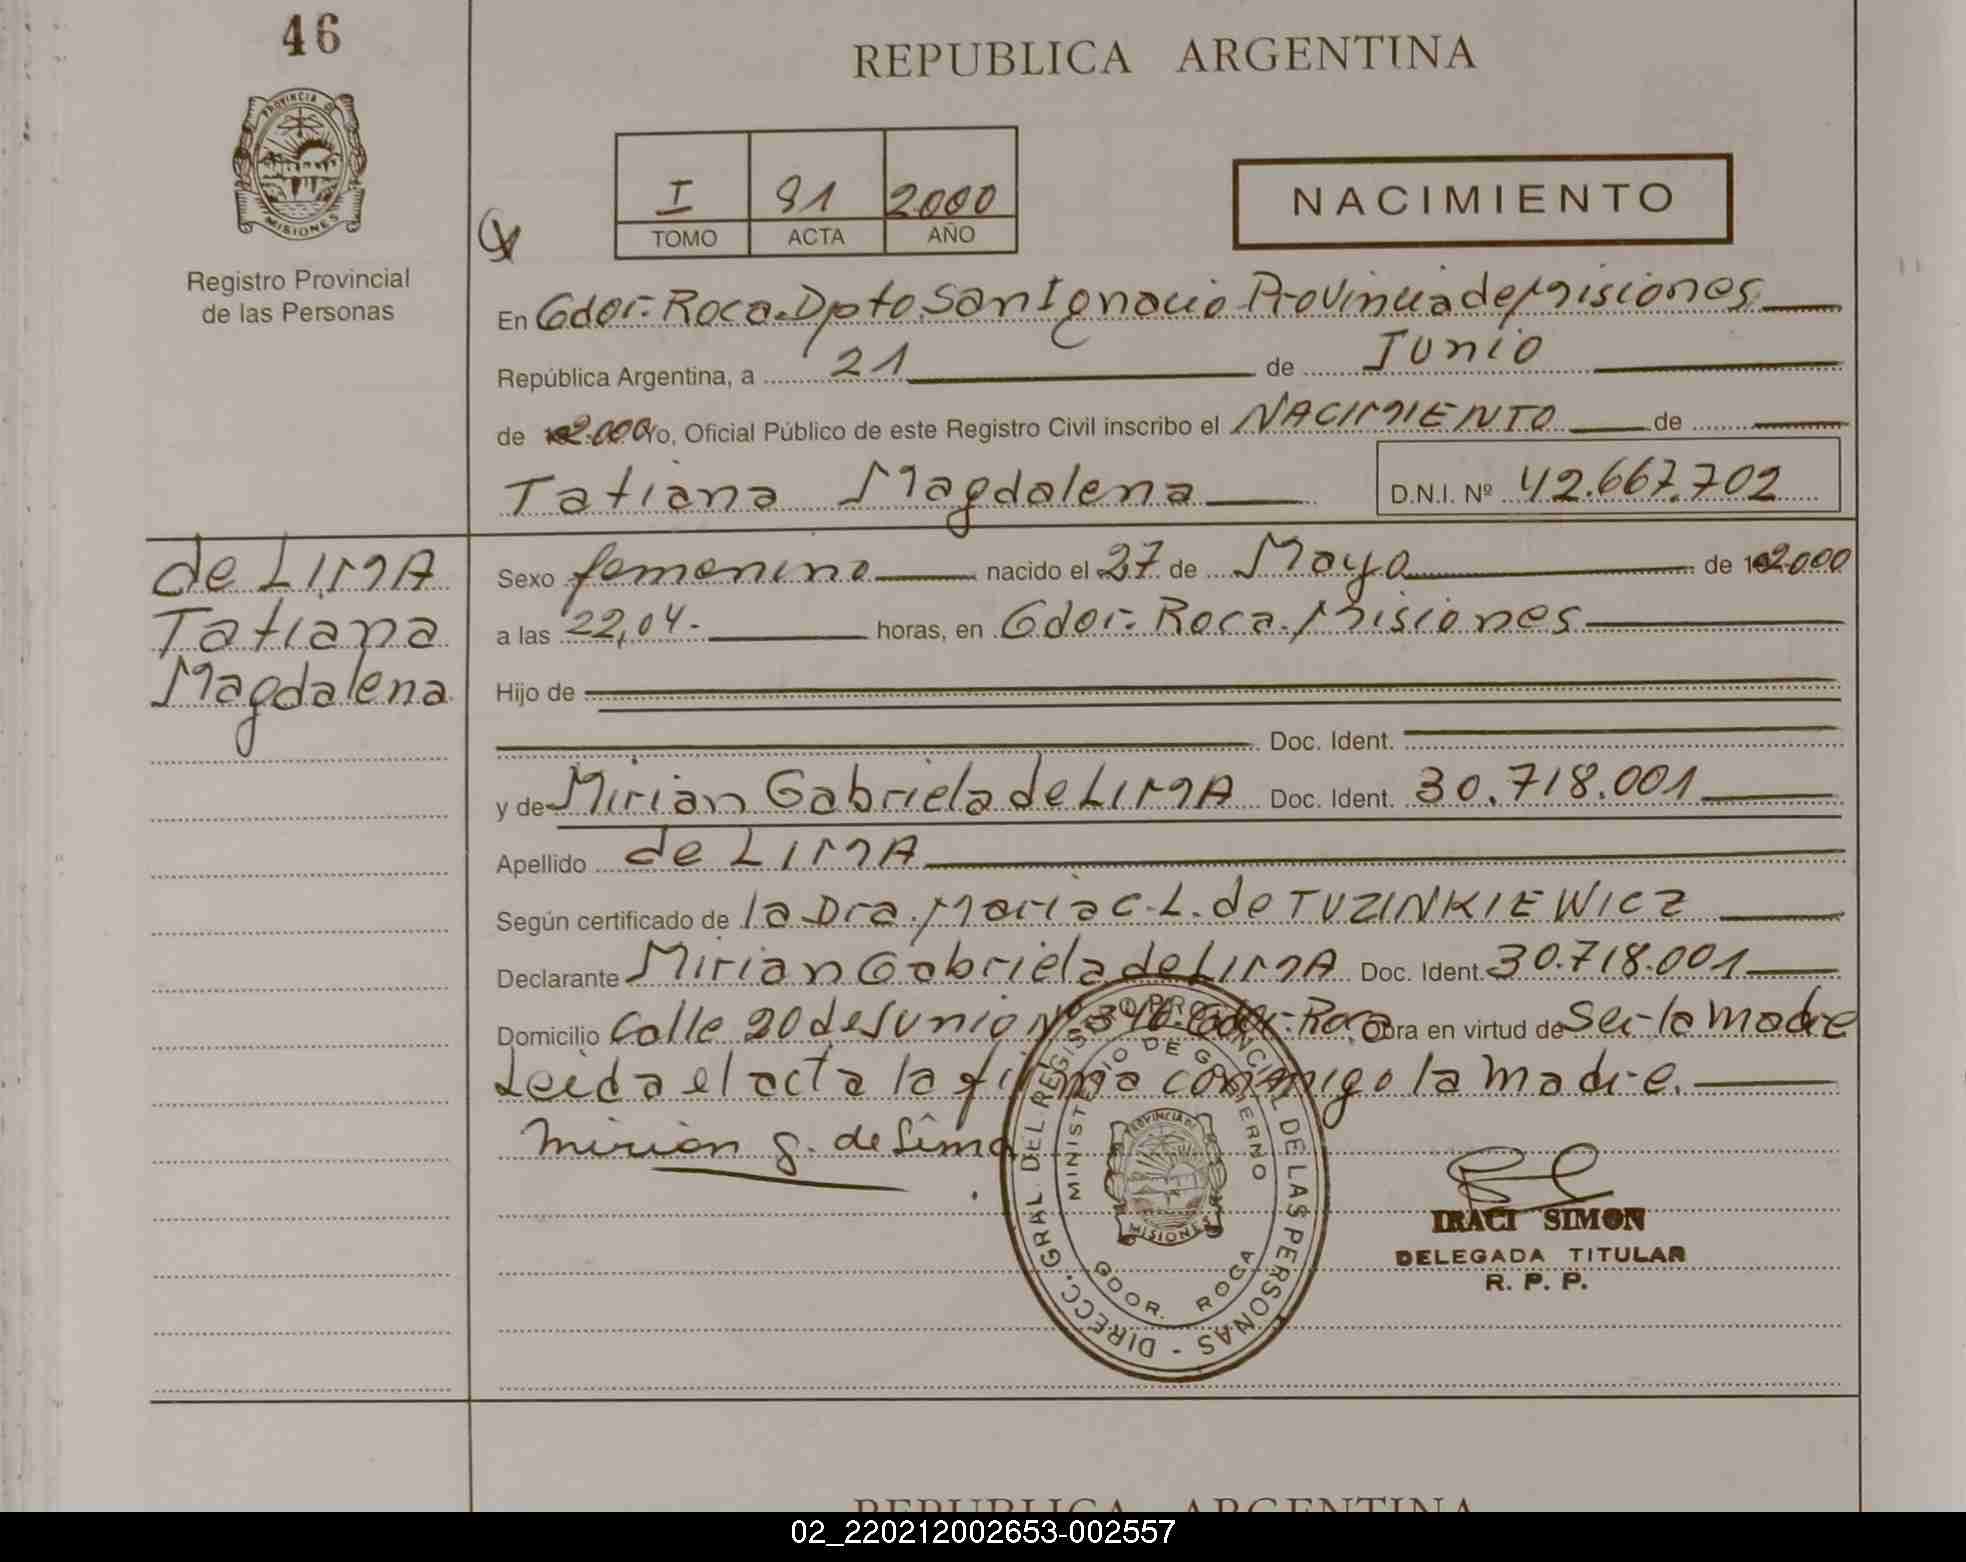 46
REPUBLICA ARGENTINA
PROVINCIA DE
MISIONES
Registro Provincial
de las Personas
I 91 2000
TOMO ACTA AÑO
NACIMIENTO
En Gdor. Roca. Dpto San Ignacio Provincia de Misiones
República Argentina, a 21 de Junio
de 2.000 Yo, Oficial Público de este Registro Civil inscribo el NACIMIENTO de
Tatiana Magdalena D.N.I. Nº 42.667.702
de LIMA
Tatiana
Magdalena
Sexo femenino nacido el 27 de Mayo de 2000
a las 22,04- horas, en Gdor. Roca. Misiones
Hijo de
Doc. Ident.
y de Mirian Gabriela de LIMA Doc. Ident. 30.718.001
Apellido de LIMA
Según certificado de la Dra. Maria C. L. de TUZINKIEWICZ
Declarante Mirian Gabriela de LIMA Doc. Ident. 30.718.001
Domicilio Calle 20 de Junio Nº 346. Gdor. Roca Obra en virtud de Ser la madre
Leida el acta la firma conmigo la madre.
Mirian G. de Lima
DIRECC. GRAL. DEL REGISTRO PROVINCIAL DE LAS PERSONAS -
MINISTERIO DE GOBIERNO
PROVINCIA DE
MISIONES
GDOR. ROCA
IRACI SIMON
DELEGADA TITULAR
R. P. P.
REPUBLICA ARGENTINA
02_220212002653-002557